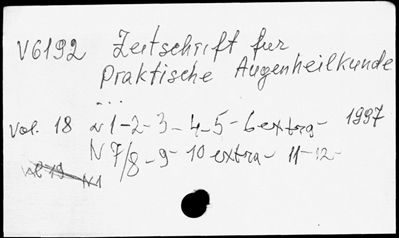 V6192 Zeitschrift fur
Praktische Augenheilkunde
...
Vol. 18 N 1-2-3-4-5-6 extra- 1997
N 7/8-9-10 extra- 11-12-
Vol 19 N1